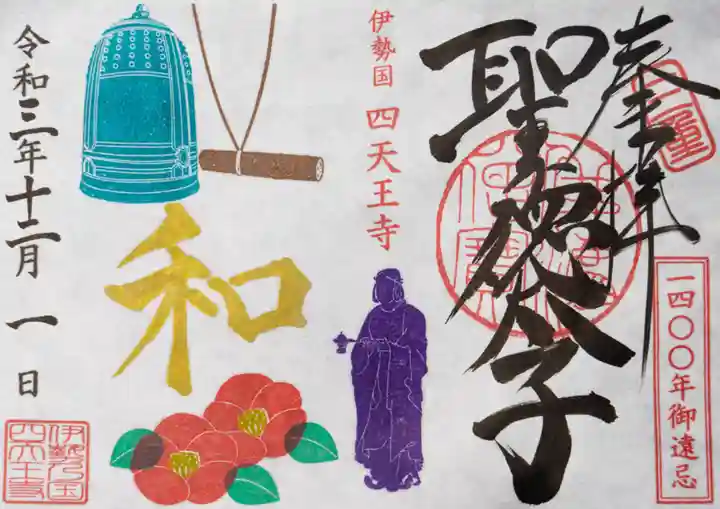 奉拝
三重
聖徳太子
仏法僧宝
一四〇〇年御遠忌
伊勢国 四天王寺
和
令和三年十二月一日
伊勢乃国
四天王寺